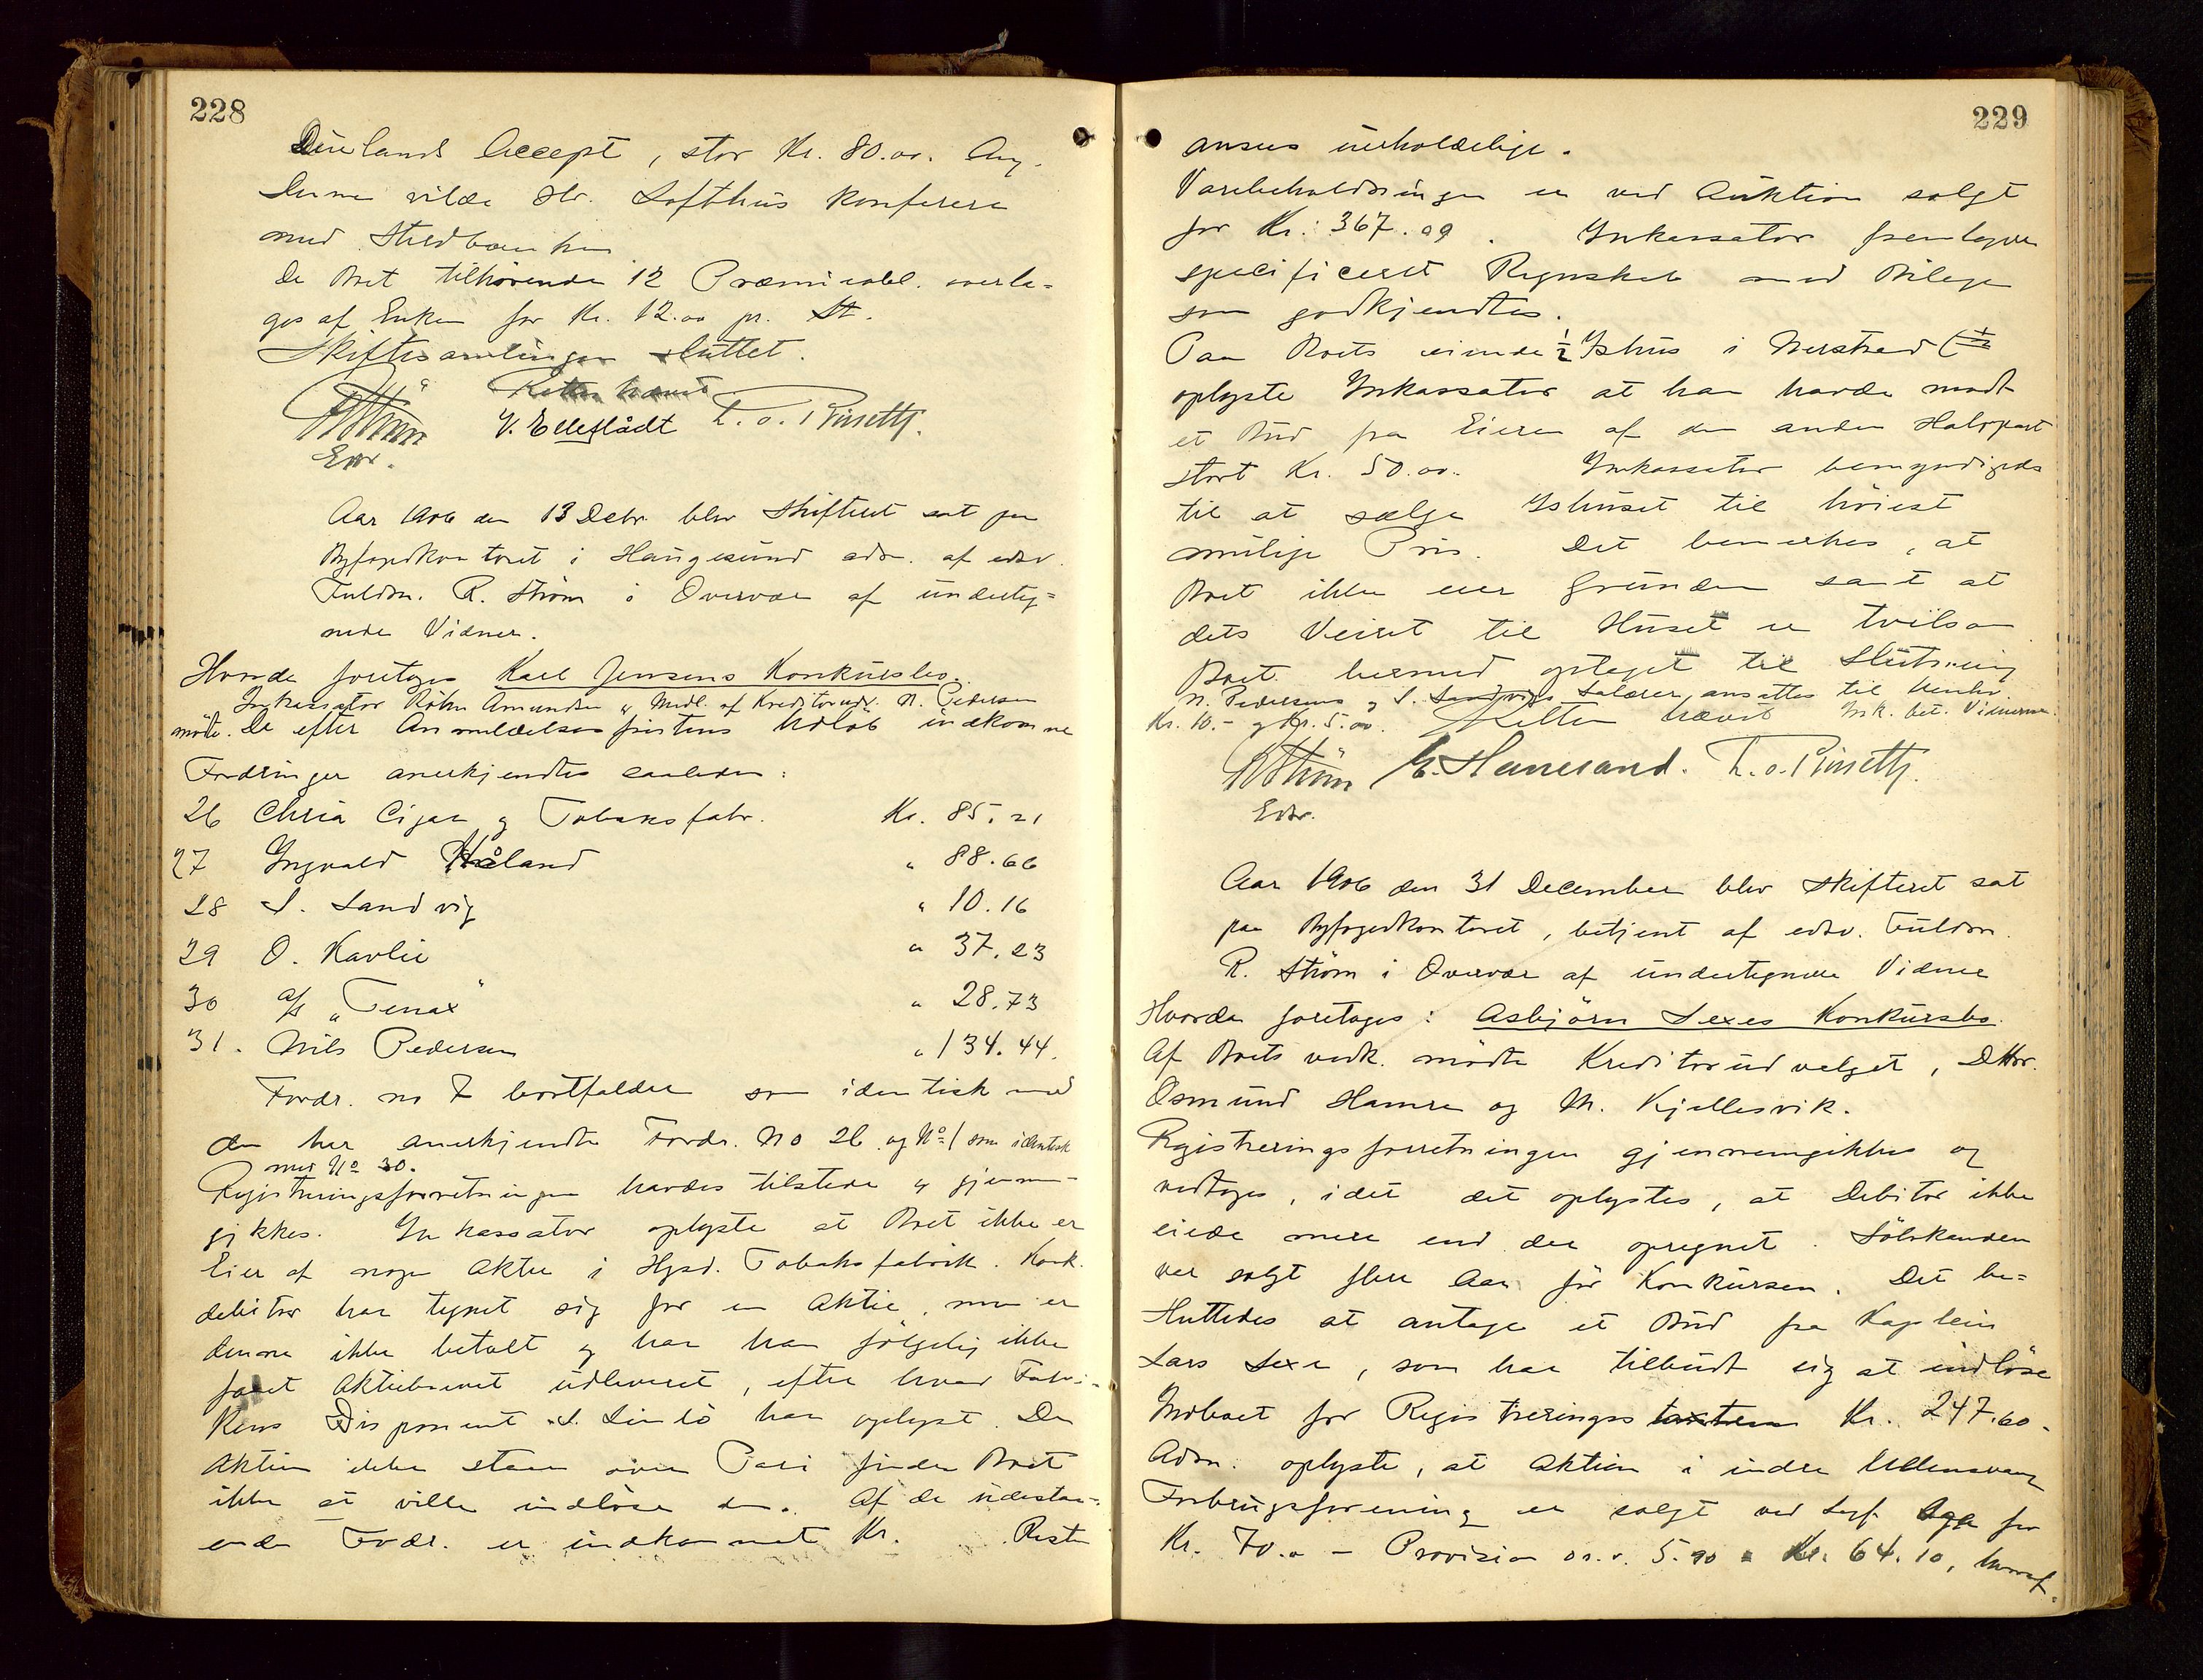 228
Duelands Accept, stor Kr. 80.00. Ang.
denne vilde Hr. Lofthus konferere
med
De Boet tilhørende 12 Præmieobl. overla-
ges af Enken for Kr. 12.00 pr. St.
Skiftesamlingen sluttet.
Retten hævet
RStröm V. Ellefládt T. O. Risetty.
Edsv.
Aar 1906 den 13 Decbr. blev Skifteret sat paa
Byfogedkontoret i Haugesund adm. af edsv.
Fuldm. R. Ström i Overvær af underteg=
nede Vidner.
Hvorda foretoges Karl Jensens Konkursbo.
Inkassator Amundsen og Medl. af Kreditorudv. N. Pedersen
mødte. De efter Anmeldelsesfristens Udløb indkomne
Fordringer anerkjendtes saaledes:
26 Chria Cigar & Tobaksfabr. Kr. 85.21
27 Ingvald Håland " 88.66
28 S. Sandvig " 10.16
29 O. Kavlie " 37.23
30 A/S "Tenax" " 28.73
31. Nils Pedersen " 134.44.
Fordr. no 7 bortfalder som identisk med
den her anerkjendte Fordr. No 26. og No 1 som identisk
med No 30.
Registreringsforretningen havdes tilstede og gjennem-
gikkes. Inkassator oplyste at Boet ikke er
Eier af nogen Aktie i Hgsd. Tobaksfabrik. Konk.
debitor har tegnet sig for en Aktie, men er
denne ikke betalt og har han følgelig ikke
faaet Aktiebrevet udleveret, efter hvad Fabri-
kens Disponent S. har oplyst. Da
Aktien ikke staar over Pari finder Boet
ikke at ville indløse den. Af de udestaa-
ende Fordr. er indkommet Kr. Resten
229
ansees uerholdelige.
Varebeholdningen er ved Auktion solgt
for Kr. 367.09. Inkassator fremlagde
specificeret Regnskab med Bilage
som godkjendtes.
Paa Boets eiende ½ Ishus i
oplyste Inkassator at han havde modt.
et Bud fra Eieren af den anden Halvpart
stort Kr. 50.00. Inkassator bemyndigedes
til at sælge Ishuset til høiest
mulige Pris. Det bemerkes, at
Boet ikke eier Grunden samt at
dets Veiret til Huset er tvilsom
Boet hermed optaget til Slutning
N. Pedersens og S. Sandvigs Salærer ansattes til henhv.
Kr. 10.- og Kr. 5.00. Retten hævet Ink. bet. Vidnerne.
RStröm E. Hanesand. T. O. Risetty.
Edsv.
Aar 1906 den 31 December blev Skifteret sat
paa Byfogedkontoret, betjent af edsv. Fuldm.
R. Ström i Overvær af undertegnede Vidner
Hvorda foretoges: Asbjørn Sexes Konkursbo.
Af Boets vedk. mødte Kreditorudvalget, DHrr.
Osmund Hamre og M. Kjellesvik.
Registreringsforretningen gjennemgikkes og
vedtoges, idet det oplystes, at Debitor ikke
eiede mere end der opregnet. Sølvkanden
var solgt flere Aar før Konkursen. Det be=
sluttedes at antage et Bud fra Kaptein
Lars Sexe, som har tilbudt sig at indløse
Indboet for Registreringstaxten Kr. 247.60.
Adm. oplyste, at Aktien i indre Ullensvang
Forbrugsforening er solgt ved Sagf. Aga for
Kr. 70.0 - Provision o.s.v. 5.90 = Kr. 64.10, hvoraf